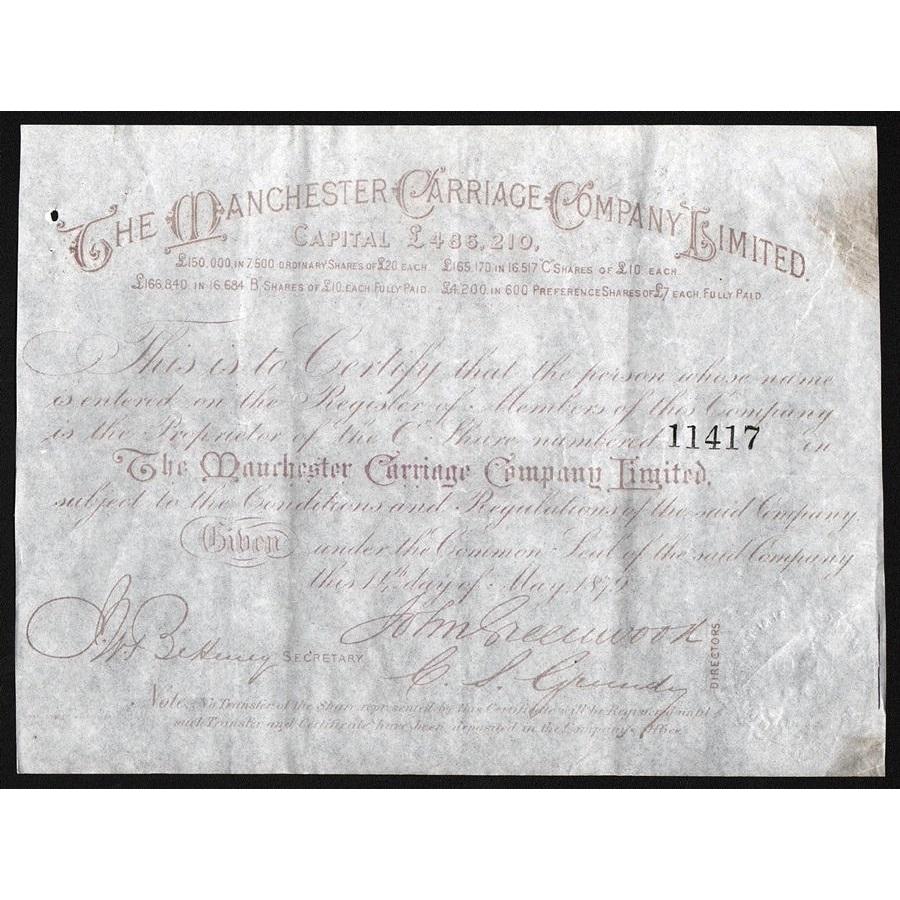 THE MANCHESTER CARRIAGE COMPANY LIMITED.
CAPITAL £486,210,
£150,000, IN 7,500 ORDINARY SHARES OF £20 EACH. £165,170 IN 16,517 "C" SHARES OF £10 EACH
£166,840, IN 16,684 B SHARES OF £10, EACH, FULLY PAID. £4,200, IN 600 PREFERENCE SHARES OF £7 EACH, FULLY PAID.
This is to Certify that the person whose name
is entered on the Register of Members of this Company
is the Proprietor of the C Share numbered 11417 in
The Manchester Carriage Company Limited,
subject to the Conditions and Regulations of the said Company.
Given under the Common Seal of the said Company
this 14th day of May, 1879
John Greenwood
SECRETARY
C. S. Grundy
DIRECTORS
Note. No Transfer of the Share represented by this Certificate will be Registered until
such Transfer and Certificate have been deposited in the Company's Office.